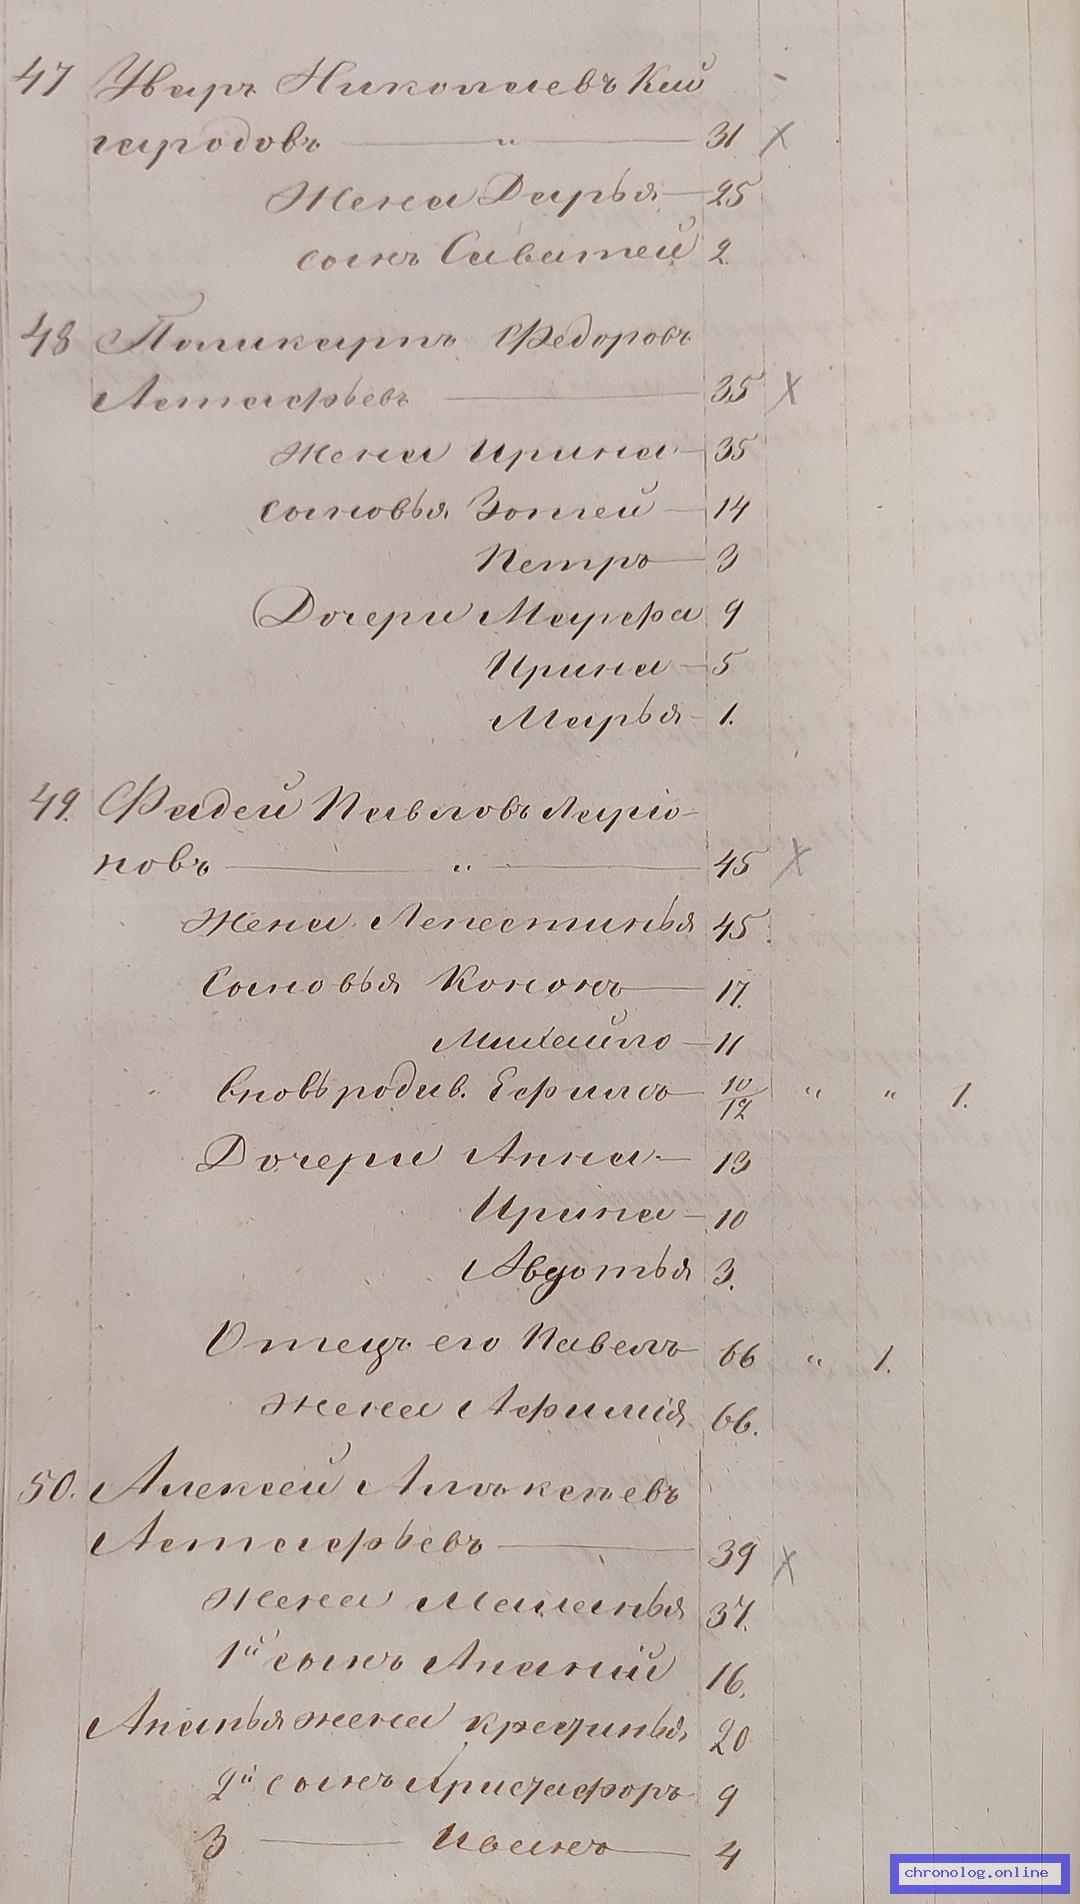 47 Уваръ Николаевъ Кай
городовъ — " — 31 х
Жена Дарья — 25
сынъ Саватей 2.
48 Поликарпъ Федоровъ
Астафьевъ — 35 х
жена Ирина — 35
сыновья Зотей — 14
Петръ — 3
Дочери Марфа 9
Ирина — 5
Марья — 1.
49. Фадей Павловъ Ларіо-
новъ — " — 45 х
Жена Лепестинья 45.
Сыновья Кононъ — 17.
Михайло — 11
вновь родив. Ефимъ — 10/12 " " 1.
Дочери Анна — 13
Ирина — 10
Авдотья 3.
Отецъ его Павелъ 66 " 1.
жена Афимія 66.
50. Алексей Алексеевъ
Астафьевъ — 39 х
жена Маланья 37.
1й сынъ Ананій 16.
Ананья жена 20
2й сынъ Христафоръ 9
3 — Иванъ — 4
chronolog.online